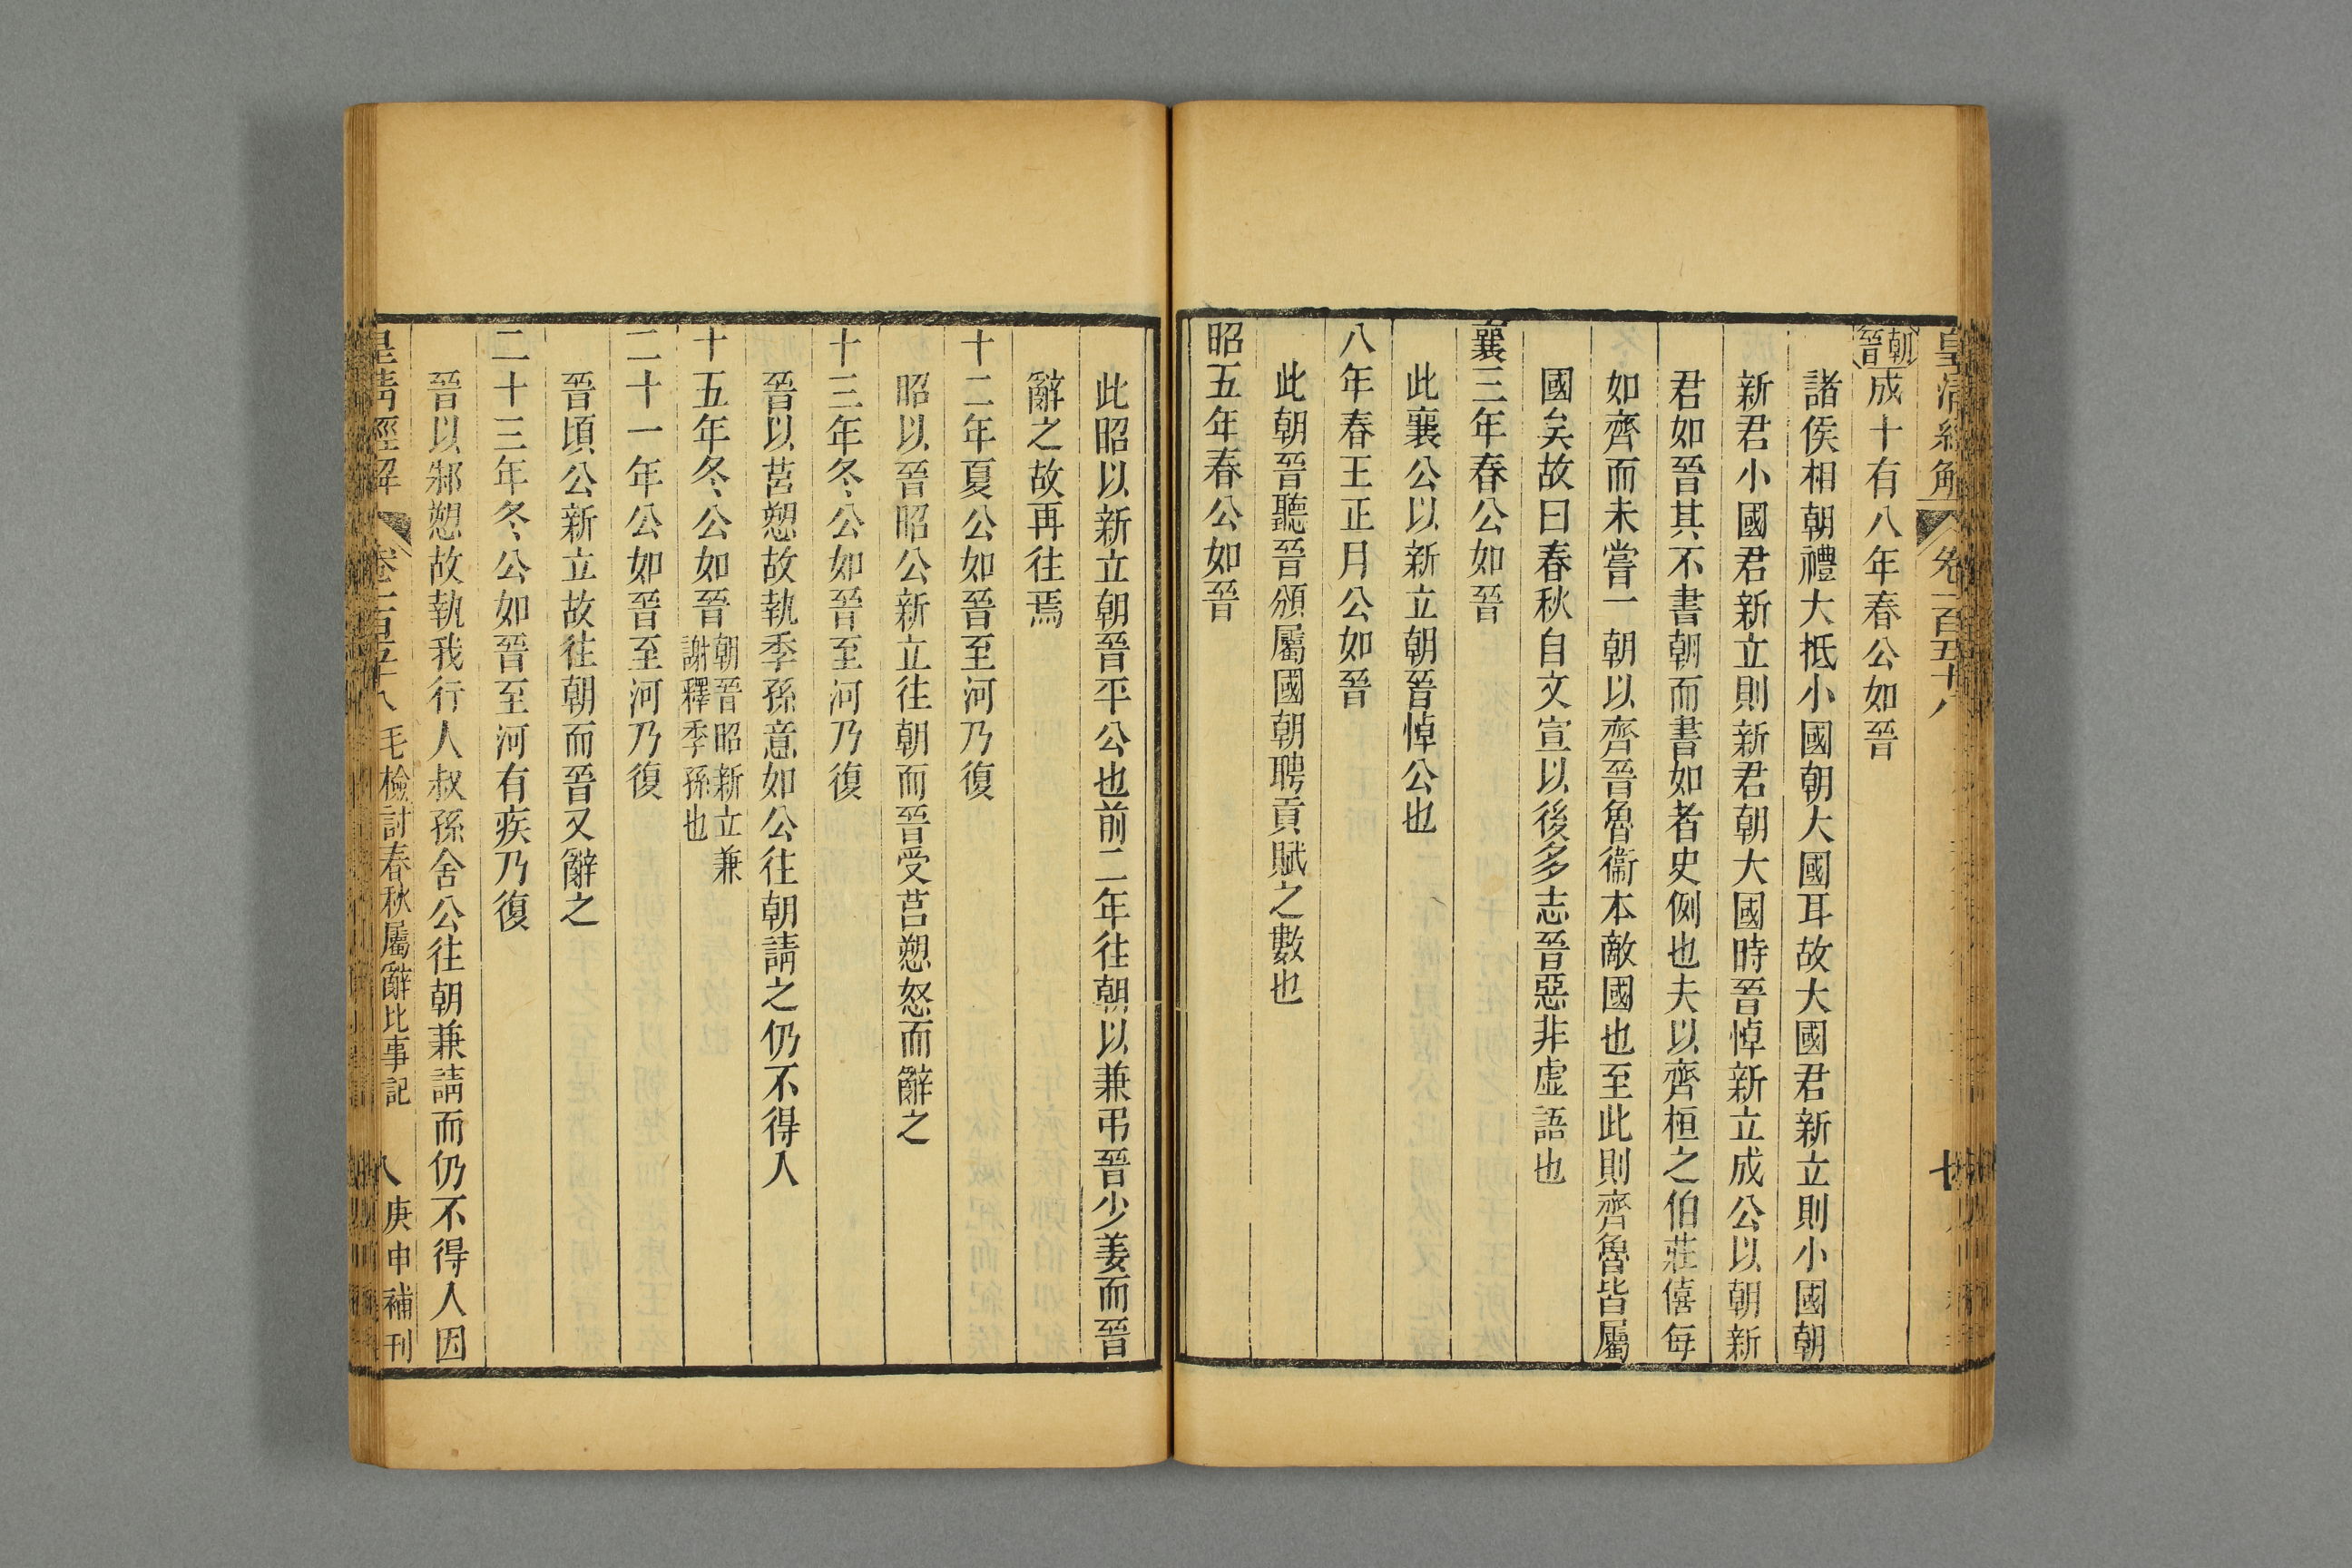 皇清經解 卷一百五十八
朝晉成十有八年春公如晉
諸侯相朝禮大抵小國朝大國耳故大國君新立則小國朝
新君小國君新立則新君朝大國時晉悼新立成公以朝新
君如晉其不書朝而書如者史例也夫以齊桓之伯莊僖每
如齊而未嘗一朝以齊晉魯衞本敵國也至此則齊魯皆屬
國矣故曰春秋自文宣以後多志晉惡非虛語也
襄三年春公如晉
此襄公以新立朝晉悼公也
八年春王正月公如晉
此朝晉聽晉頒屬國朝聘貢賦之數也
昭五年春公如晉
此昭以新立朝晉平公也前二年往朝以兼弔晉少姜而晉
辭之故再往焉
十二年夏公如晉至河乃復
昭以晉昭公新立往朝而晉受莒愬怒而辭之
十三年冬公如晉至河乃復
晉以莒愬故執季孫意如公往朝請之仍不得入
十五年冬公如晉朝晉昭新立兼謝釋季孫也
二十一年公如晉至河乃復
晉頃公新立故往朝而晉又辭之
二十三年冬公如晉至河有疾乃復
晉以邾愬故執我行人叔孫舍公往朝兼請而仍不得入因
皇清經解 卷一百五十八 毛檢討春秋屬辭比事記 八 庚申補刊